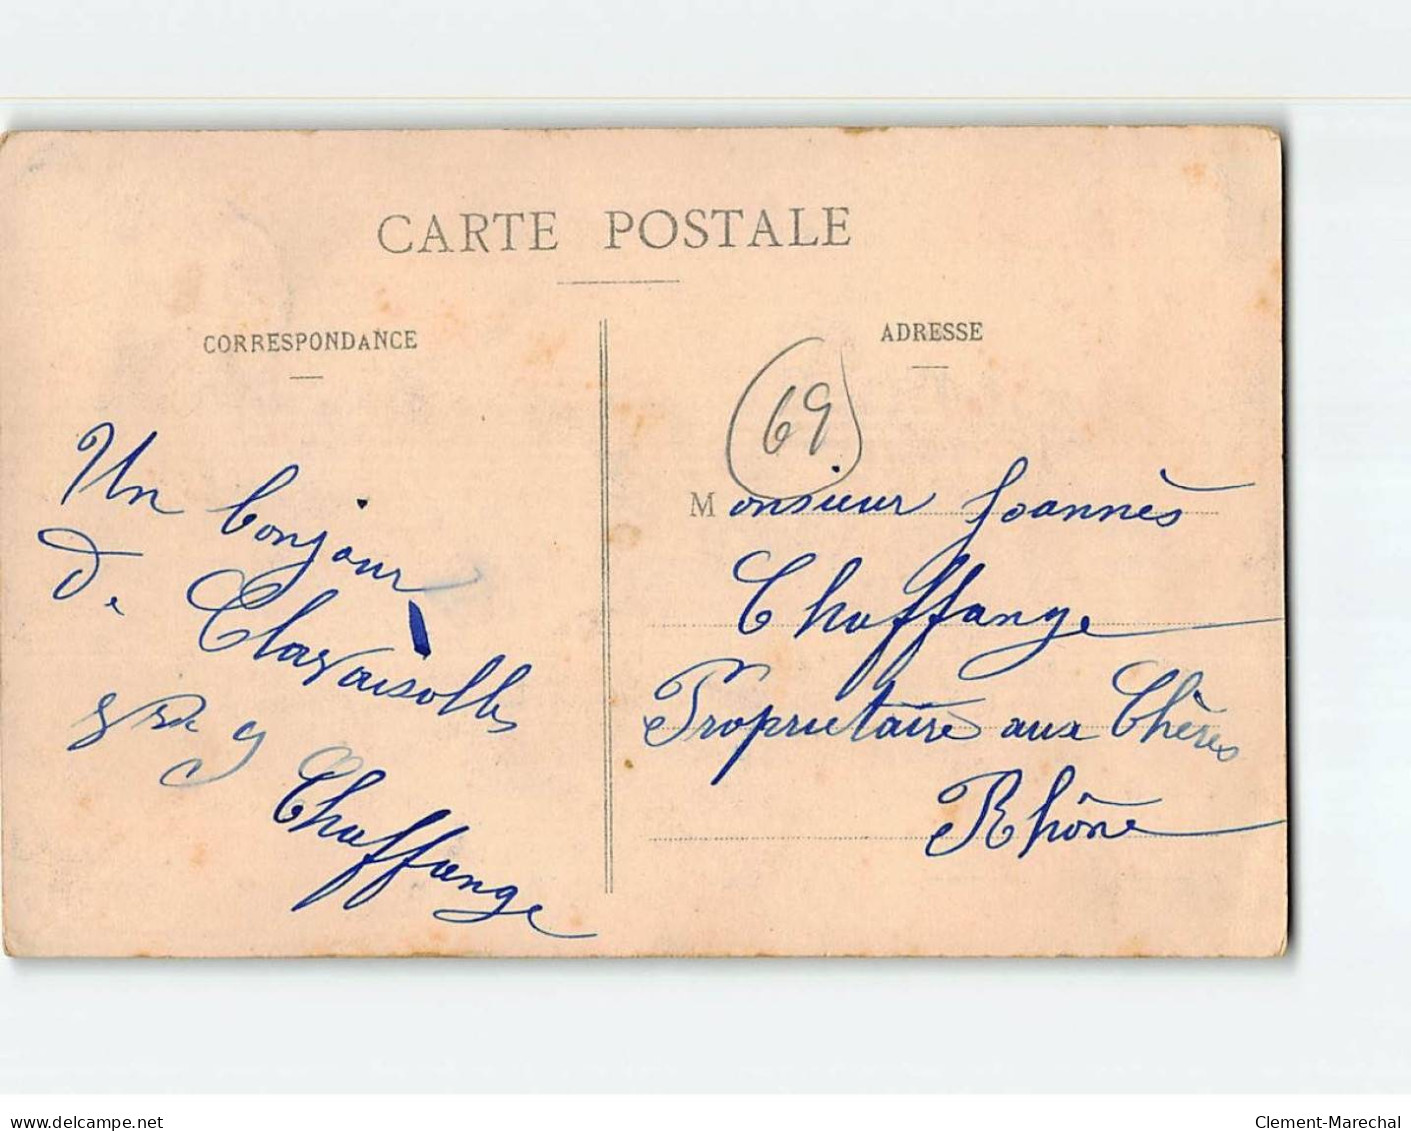 CARTE POSTALE
CORRESPONDANCE
Un bonjour
De Claveisolles
Chaffange
ADRESSE
69
Monsieur Joannès
Chaffange
Propriétaire aux Chères
Rhône
www.delcampe.net
Clement-Marechal